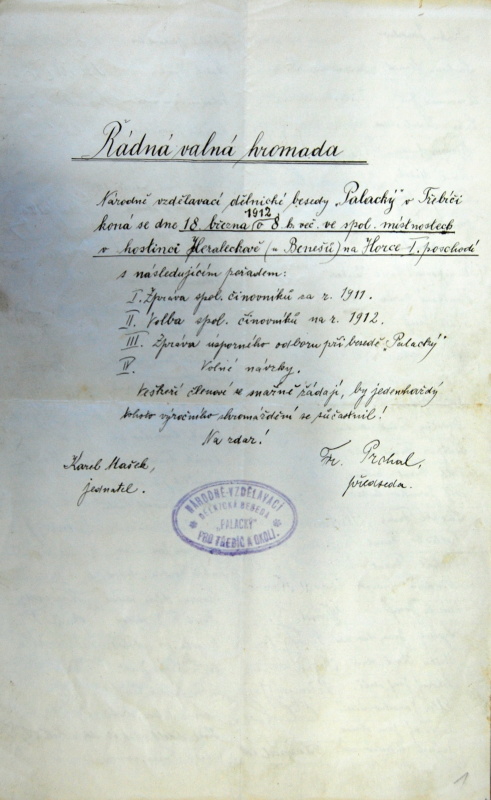 Řádná valná hromada
Národně vzdělavací dělnické besedy „Palacký“ v Třebíči
1912
koná se dne 18. března o 8. h. več. ve spol. místnostech
v hostinci Heraleckově (u Benešů) na Horce I. poschodí
s následujícím pořadem:
I. Zpráva spol. činovníků za r. 1911.
II. Volba spol. činovníků na r. 1912.
III. Zpráva úsporného odboru při besedě „Palacký“
IV. Volné návrhy.
Veškeří členové se snažně žádají, by jedenkaždý
tohoto výročního shromáždění se súčastnil!
Na zdar!
Karel Mašek, Fr. Prchal,
jednatel. předseda.
NÁRODNĚ-VZDĚLAVACÍ
DĚLNICKÁ BESEDA
„PALACKÝ“
PRO TŘEBÍČ A OKOLÍ.
1